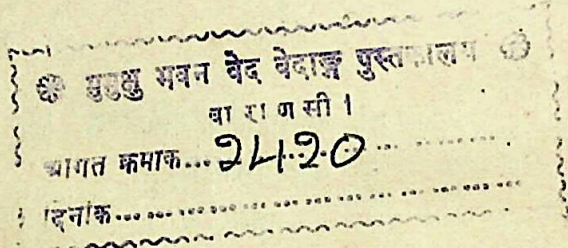 ❀ मुमुक्षु भवन वेद वेदाङ्ग पुस्तकालय ❀
वा रा ण सी ।
आगत क्रमाक... 2420 ............
दिनांक.......................................